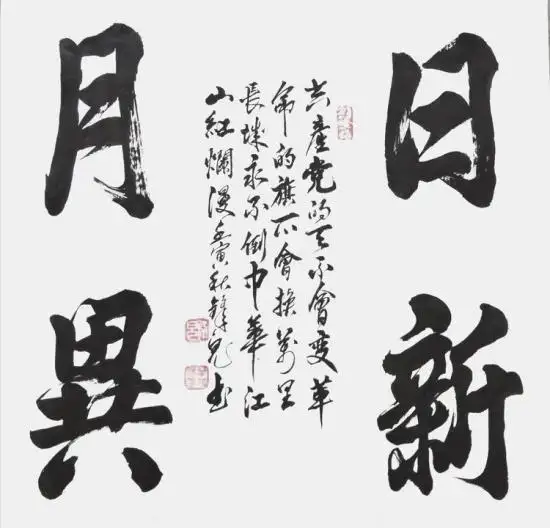 日新
共產党的天不會变革
命的旗不會换萬里
長城永不倒中華江
山紅爛漫壬寅秋書
月異